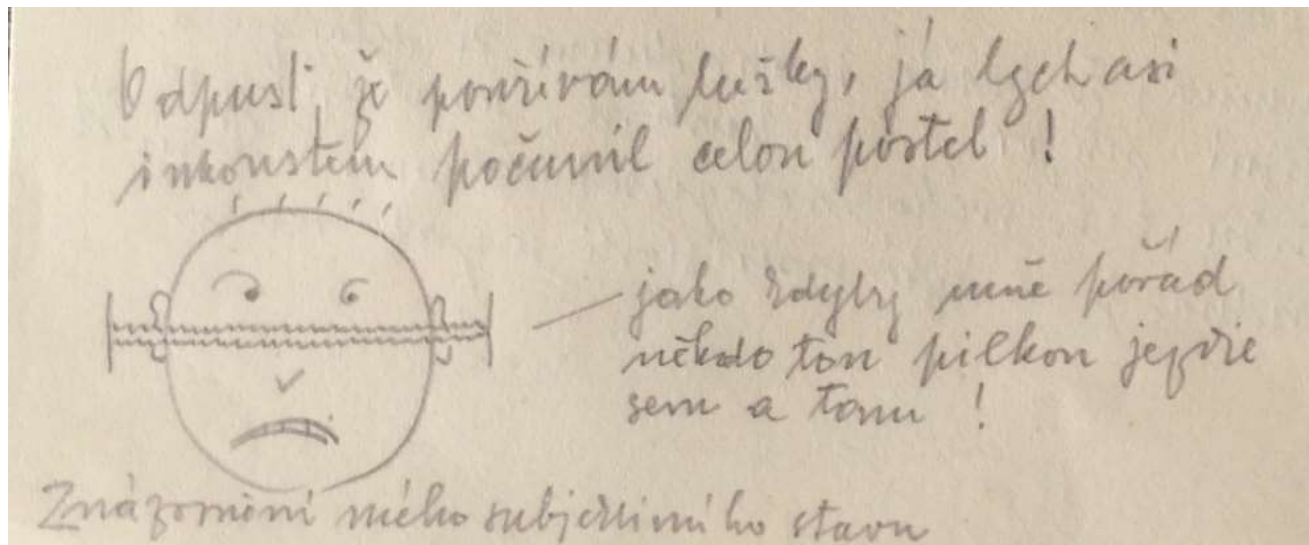 Odpusť, že používám tužky, já bych asi
inkoustem počunil celou postel!
jako kdyby mně pořád
někdo tou pilkou jezdil
sem a tam!
Znázornění mého subjektivního stavu